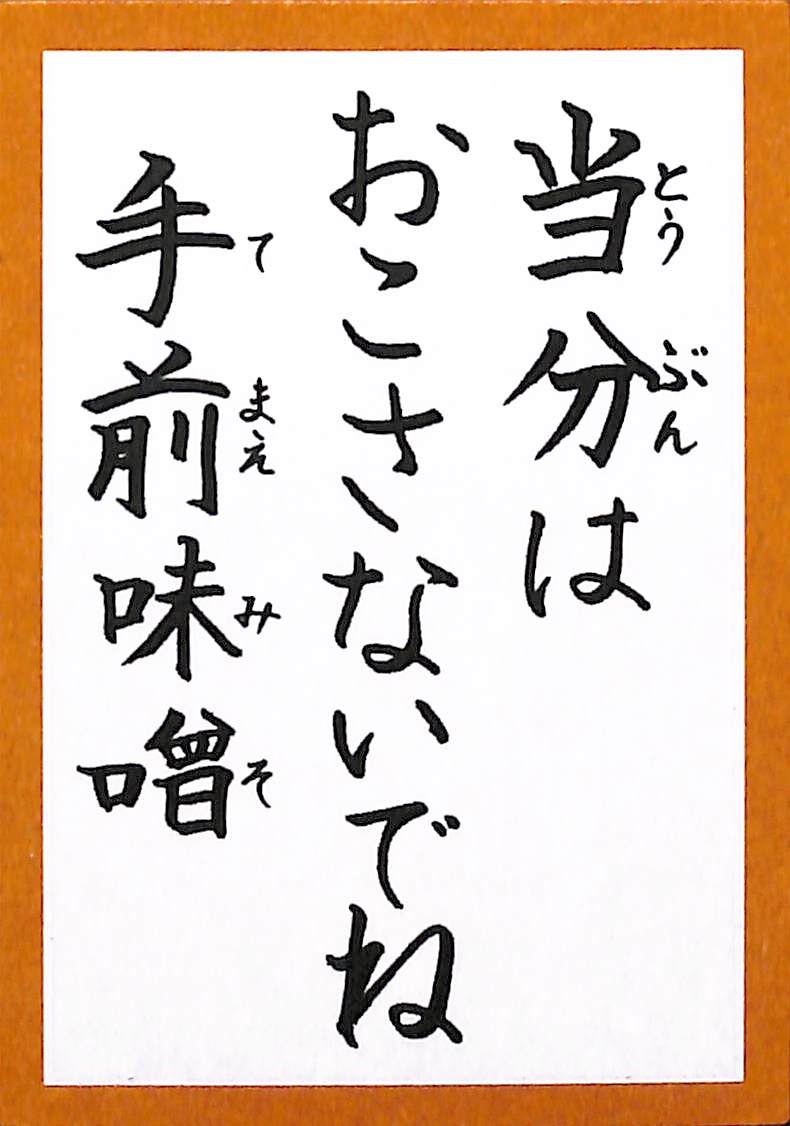 当分は
おこさないでね
手前味噌
とう
ぶん
て
まえ
み
そ